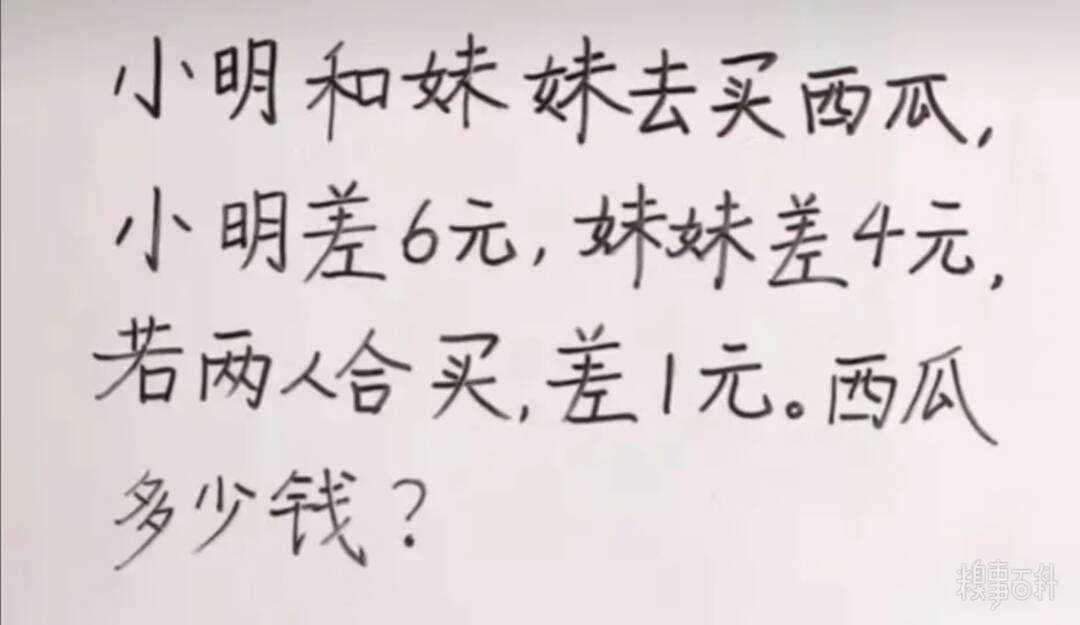 小明和妹妹去买西瓜,
小明差6元,妹妹差4元,
若两人合买,差1元。西瓜
多少钱?
糗事百科